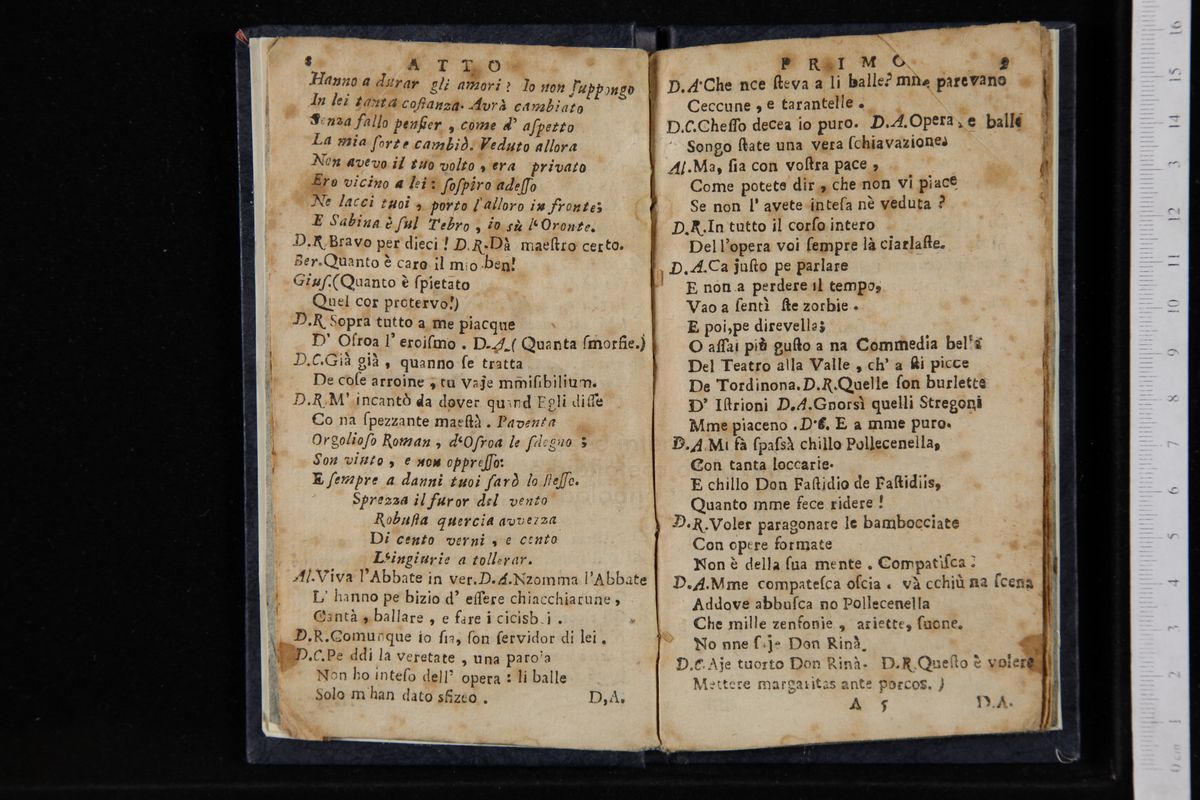 8 ATTO
Hanno a durar gli amori? Io non ſuppongo
In lei tanta coſtanza. Avrà cambiato
Senza fallo penſier, come d' aſpetto
La mia ſorte cambiò. Veduto allora
Non avevo il tuo volto, era privato
Ero vicino a lei: ſoſpiro adeſſo
Ne lacci tuoi, porto l'alloro in fronte;
E Sabina è ſul Tebro, io sù l'Oronte.
D.R. Bravo per dieci! D.R. Dà maeſtro certo.
Ber. Quanto è caro il mio ben!
Giuſ. (Quanto è ſpietato
Quel cor protervo!)
D.R. Sopra tutto a me piacque
D' Oſroa l' eroiſmo. D.A. (Quanta ſmorfie.)
D.C. Già già, quanno ſe tratta
De coſe arroine, tu vaje mmiſibilium.
D.R. M' incantò da dover quand Egli diſſe
Co na ſpezzante maeſtà. Paventa
Orgolioſo Roman, d'Oſroa le ſdegno;
Son vinto, e non oppreſſo:
E ſempre a danni tuoi ſarò lo ſteſſo.
Sprezza il furor del vento
Robuſta quercia avvezza
Di cento verni, e cento
L'ingiurie a tollerar.
Al. Viva l'Abbate in ver. D.A. Nzomma l'Abbate
L' hanno pe bizio d' eſſere chiacchiarune,
Cantà, ballare, e fare i cicisb.i.
D.R. Comunque io ſia, ſon ſervidor di lei.
D.C. Pe ddi la veretate, una parola
Non ho inteſo dell' opera: li balle
Solo m'han dato sfizeo. D,A.
PRIMO 9
D.A. Che nce ſteva a li balle? mne parevano
Ceccune, e tarantelle.
D.C. Cheſſo decea io puro. D.A. Opera, e balle
Songo ſtate una vera ſchiavazione.
Al. Ma, ſia con voſtra pace,
Come potete dir, che non vi piace
Se non l' avete inteſa nè veduta?
D.R. In tutto il corſo intero
Dell'opera voi ſempre là ciarlaſte.
D.A. Ca juſto pe parlare
E non a perdere il tempo,
Vao a ſentì ſte zorbie.
E poi, pe direvella;
O aſſai più guſto a na Commedia bella
Del Teatro alla Valle, ch' a ſti picce
De Tordinona. D.R. Quelle ſon burlette
D' Iſtrioni D.A. Gnorsì quelli Stregoni
Mme piaceno. D.C. E a mme puro.
D.A. Mi fà ſpaſsà chillo Pollecenella,
Con tanta loccarie.
E chillo Don Faſtidio de Faſtidiis,
Quanto mme fece ridere!
D.R. Voler paragonare le bambocciate
Con opere formate
Non è della ſua mente. Compatiſca:
D.A. Mme compateſca oſcia. và cchiù na ſcena
Addove abbuſca no Pollecenella
Che mille zenfonie, ariette, ſuone.
No nne ſaje Don Rinà.
D.C. Aje tuorto Don Rinà. D.R. Queſto è volere
Mettere margaritas ante porcos.)
A 5 D.A.